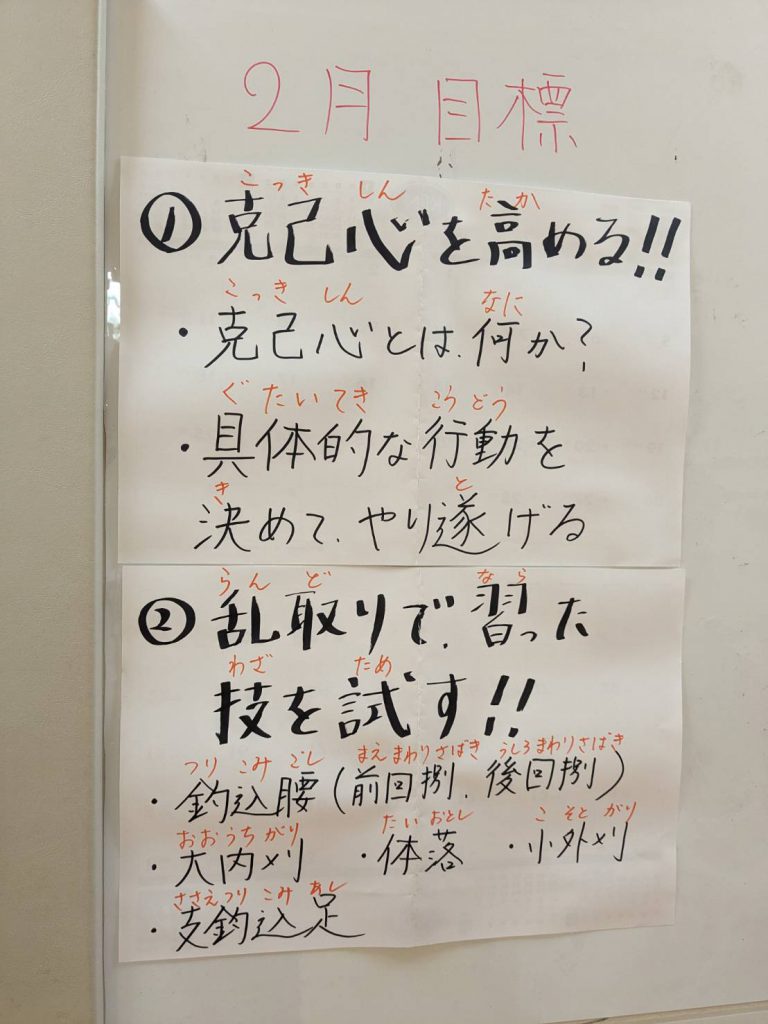 2月 目標
こっき しん たか
① 克己心を高める!!
こっき しん なに
・克己心とは、何か?
ぐ たい てき こう どう
・具体的な行動を
き と
決めて、やり遂げる
らん ど なら
② 乱取りで、習った
わざ ため
技を試す!!
つり こみ ごし まえ まわり さばき うしろ まわり さばき
・釣込腰(前回捌、後回捌)
おお うち がり たい おとし こ そと がり
・大内刈 ・体落 ・小外刈
ささえ つり こみ あし
・支釣込足